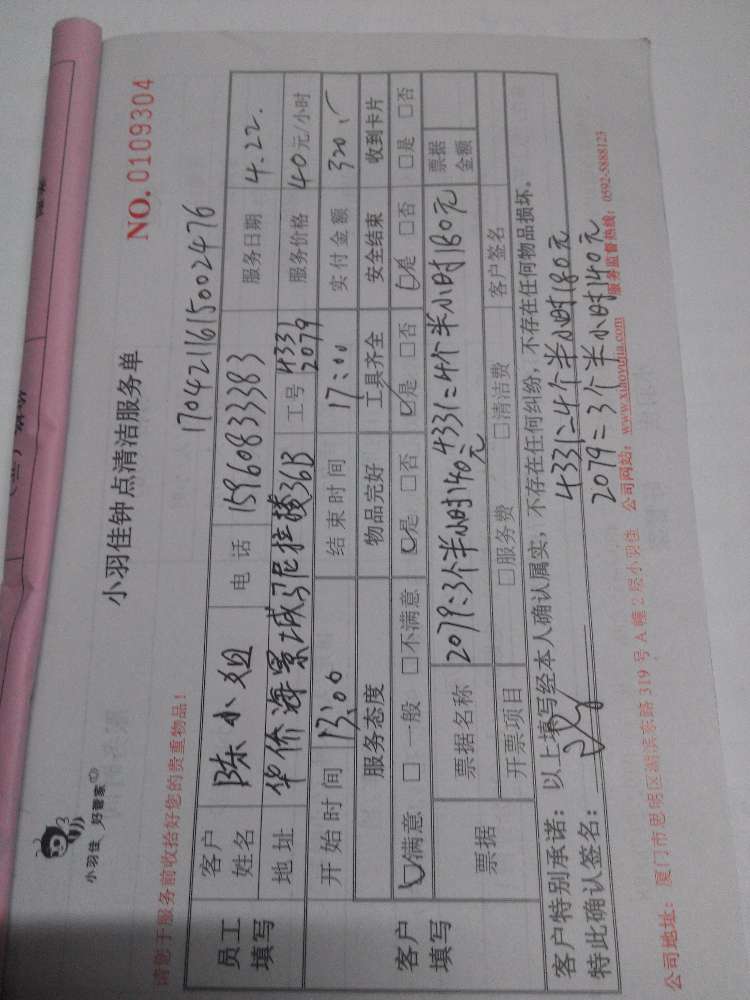 小羽佳 好管家
小羽佳钟点清洁服务单
NO. 0109304
请您于服务前收拾好您的贵重物品!
1704211615002476
员工填写
客户姓名 陈小姐 电话 15960833383 服务日期 4.22.
地址 华侨海景城马尼拉楼36B 工号 4331 2079 服务价格 40元/小时
开始时间 13:00 结束时间 17:00 实付金额 320.
客户填写
服务态度 物品完好 工具齐全 安全结束 收到卡片
☑满意 □一般 □不满意 ☑是 □否 ☑是 □否 ☑是 □否 □是 □否
票据 票据名称 2079=3个半小时140元 4331=4个半小时180元 票据金额
开票项目 □服务费 □清洁费 客户签名
客户特别承诺:以上填写经本人确认属实,不存在任何纠纷,不存在任何物品损坏。
特此确认签名:
4331=4个半小时180元
2079=3个半小时140元
公司地址:厦门市思明区湖滨东路319号A幢2层小羽佳 公司网站:www.xiaoyujia.com 服务监督热线:0592-5888123